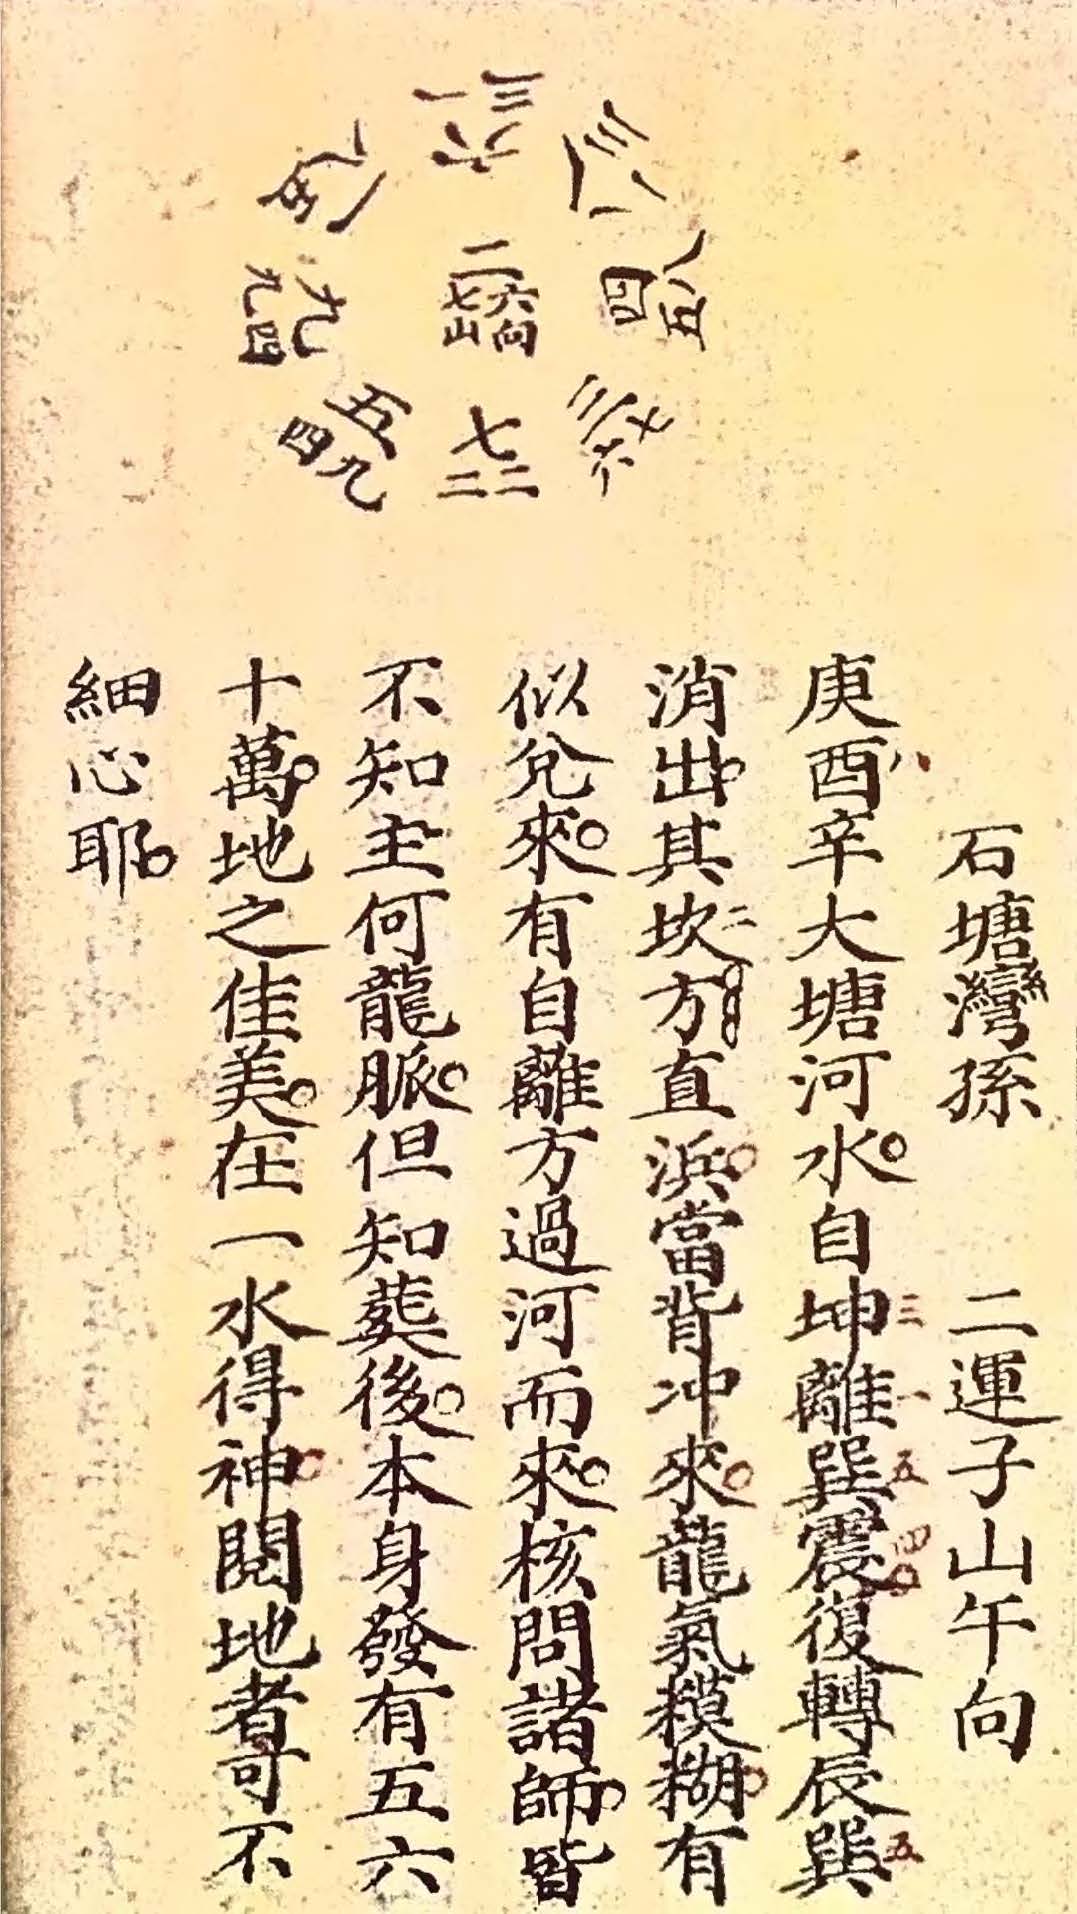 三一
六
三一
八
八五
四
七六
三
七
二二
五
四九
九
九四
一
八五
二
七山六向
石塘灣孫　二運子山午向
庚酉八辛大塘河水。自坤三離一巽五震四。復轉辰巽五
消出。其坎二方直浜。當背冲來。龍氣糢糊。有
似兌來。有自離方過河而來。核問諸師。皆
不知主何龍脈。但知葬後。本身發有五六
十萬。地之佳美。在一水得神。閱地者可不
細心耶。